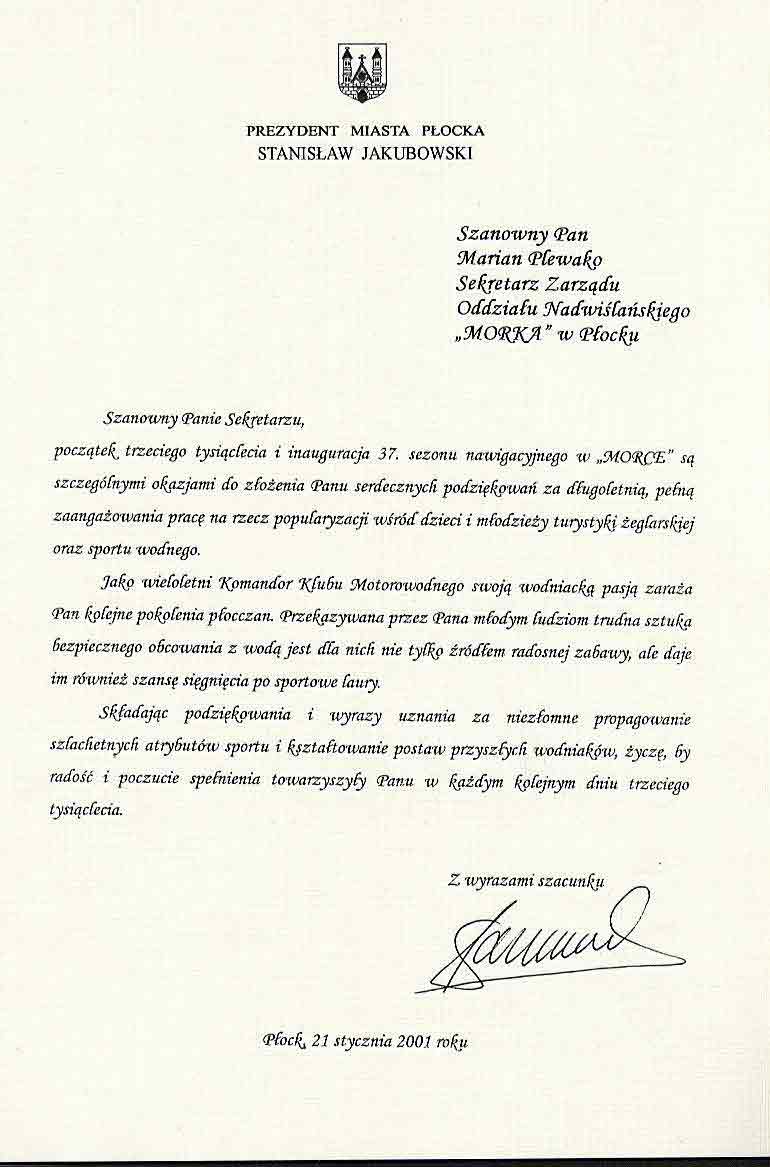 PREZYDENT MIASTA PŁOCKA
STANISŁAW JAKUBOWSKI
Szanowny Pan
Marian Plewako
Sekretarz Zarządu
Oddziału Nadwiślańskiego
„MORKA” w Płocku
Szanowny Panie Sekretarzu,
początek trzeciego tysiąclecia i inauguracja 37. sezonu nawigacyjnego w „MORCE” są
szczególnymi okazjami do złożenia Panu serdecznych podziękowań za długoletnią, pełną
zaangażowania pracę na rzecz popularyzacji wśród dzieci i młodzieży turystyki żeglarskiej
oraz sportu wodnego.
Jako wieloletni Komandor Klubu Motorowodnego swoją wodniacką pasją zaraża
Pan kolejne pokolenia płocczan. Przekazywana przez Pana młodym ludziom trudna sztuka
bezpiecznego obcowania z wodą jest dla nich nie tylko źródłem radosnej zabawy, ale daje
im również szansę sięgnięcia po sportowe laury.
Składając podziękowania i wyrazy uznania za niezłomne propagowanie
szlachetnych atrybutów sportu i kształtowanie postaw przyszłych wodniaków, życzę, by
radość i poczucie spełnienia towarzyszyły Panu w każdym kolejnym dniu trzeciego
tysiąclecia.
Z wyrazami szacunku
Płock, 21 stycznia 2001 roku